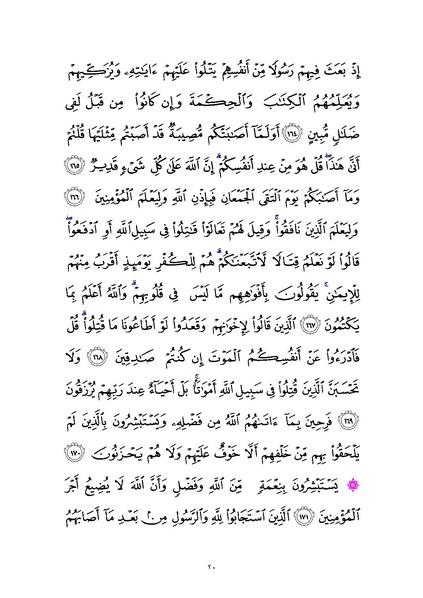 إِذۡ بَعَثَ فِيهِمۡ رَسُولٗا مِّنۡ أَنفُسِهِمۡ يَتۡلُواْ عَلَيۡهِمۡ ءَايَٰتِهِۦ وَيُزَكِّيهِمۡ
وَيُعَلِّمُهُمُ ٱلۡكِتَٰبَ وَٱلۡحِكۡمَةَ وَإِن كَانُواْ مِن قَبۡلُ لَفِي
ضَلَٰلٖ مُّبِينٍ ١٦٤ أَوَلَمَّآ أَصَٰبَتۡكُم مُّصِيبَةٞ قَدۡ أَصَبۡتُم مِّثۡلَيۡهَا قُلۡتُمۡ
أَنَّىٰ هَٰذَاۖ قُلۡ هُوَ مِنۡ عِندِ أَنفُسِكُمۡۗ إِنَّ ٱللَّهَ عَلَىٰ كُلِّ شَيۡءٖ قَدِيرٞ ١٦٥
وَمَآ أَصَٰبَكُمۡ يَوۡمَ ٱلۡتَقَى ٱلۡجَمۡعَانِ فَبِإِذۡنِ ٱللَّهِ وَلِيَعۡلَمَ ٱلۡمُؤۡمِنِينَ ١٦٦
وَلِيَعۡلَمَ ٱلَّذِينَ نَافَقُواْۚ وَقِيلَ لَهُمۡ تَعَالَوۡاْ قَٰتِلُواْ فِي سَبِيلِ ٱللَّهِ أَوِ ٱدۡفَعُواْۖ
قَالُواْ لَوۡ نَعۡلَمُ قِتَالٗا لَّٱتَّبَعۡنَٰكُمۡۗ هُمۡ لِلۡكُفۡرِ يَوۡمَئِذٍ أَقۡرَبُ مِنۡهُمۡ
لِلۡإِيمَٰنِۚ يَقُولُونَ بِأَفۡوَٰهِهِم مَّا لَيۡسَ فِي قُلُوبِهِمۡۚ وَٱللَّهُ أَعۡلَمُ بِمَا
يَكۡتُمُونَ ١٦٧ ٱلَّذِينَ قَالُواْ لِإِخۡوَٰنِهِمۡ وَقَعَدُواْ لَوۡ أَطَاعُونَا مَا قُتِلُواْۗ قُلۡ
فَٱدۡرَءُواْ عَنۡ أَنفُسِكُمُ ٱلۡمَوۡتَ إِن كُنتُمۡ صَٰدِقِينَ ١٦٨ وَلَا
تَحۡسَبَنَّ ٱلَّذِينَ قُتِلُواْ فِي سَبِيلِ ٱللَّهِ أَمۡوَٰتَۢاۚ بَلۡ أَحۡيَآءٌ عِندَ رَبِّهِمۡ يُرۡزَقُونَ
١٦٩ فَرِحِينَ بِمَآ ءَاتَىٰهُمُ ٱللَّهُ مِن فَضۡلِهِۦ وَيَسۡتَبۡشِرُونَ بِٱلَّذِينَ لَمۡ
يَلۡحَقُواْ بِهِم مِّنۡ خَلۡفِهِمۡ أَلَّا خَوۡفٌ عَلَيۡهِمۡ وَلَا هُمۡ يَحۡزَنُونَ ١٧٠
۞ يَسۡتَبۡشِرُونَ بِنِعۡمَةٖ مِّنَ ٱللَّهِ وَفَضۡلٖ وَأَنَّ ٱللَّهَ لَا يُضِيعُ أَجۡرَ
ٱلۡمُؤۡمِنِينَ ١٧١ ٱلَّذِينَ ٱسۡتَجَابُواْ لِلَّهِ وَٱلرَّسُولِ مِنۢ بَعۡدِ مَآ أَصَابَهُمُ
٢٠